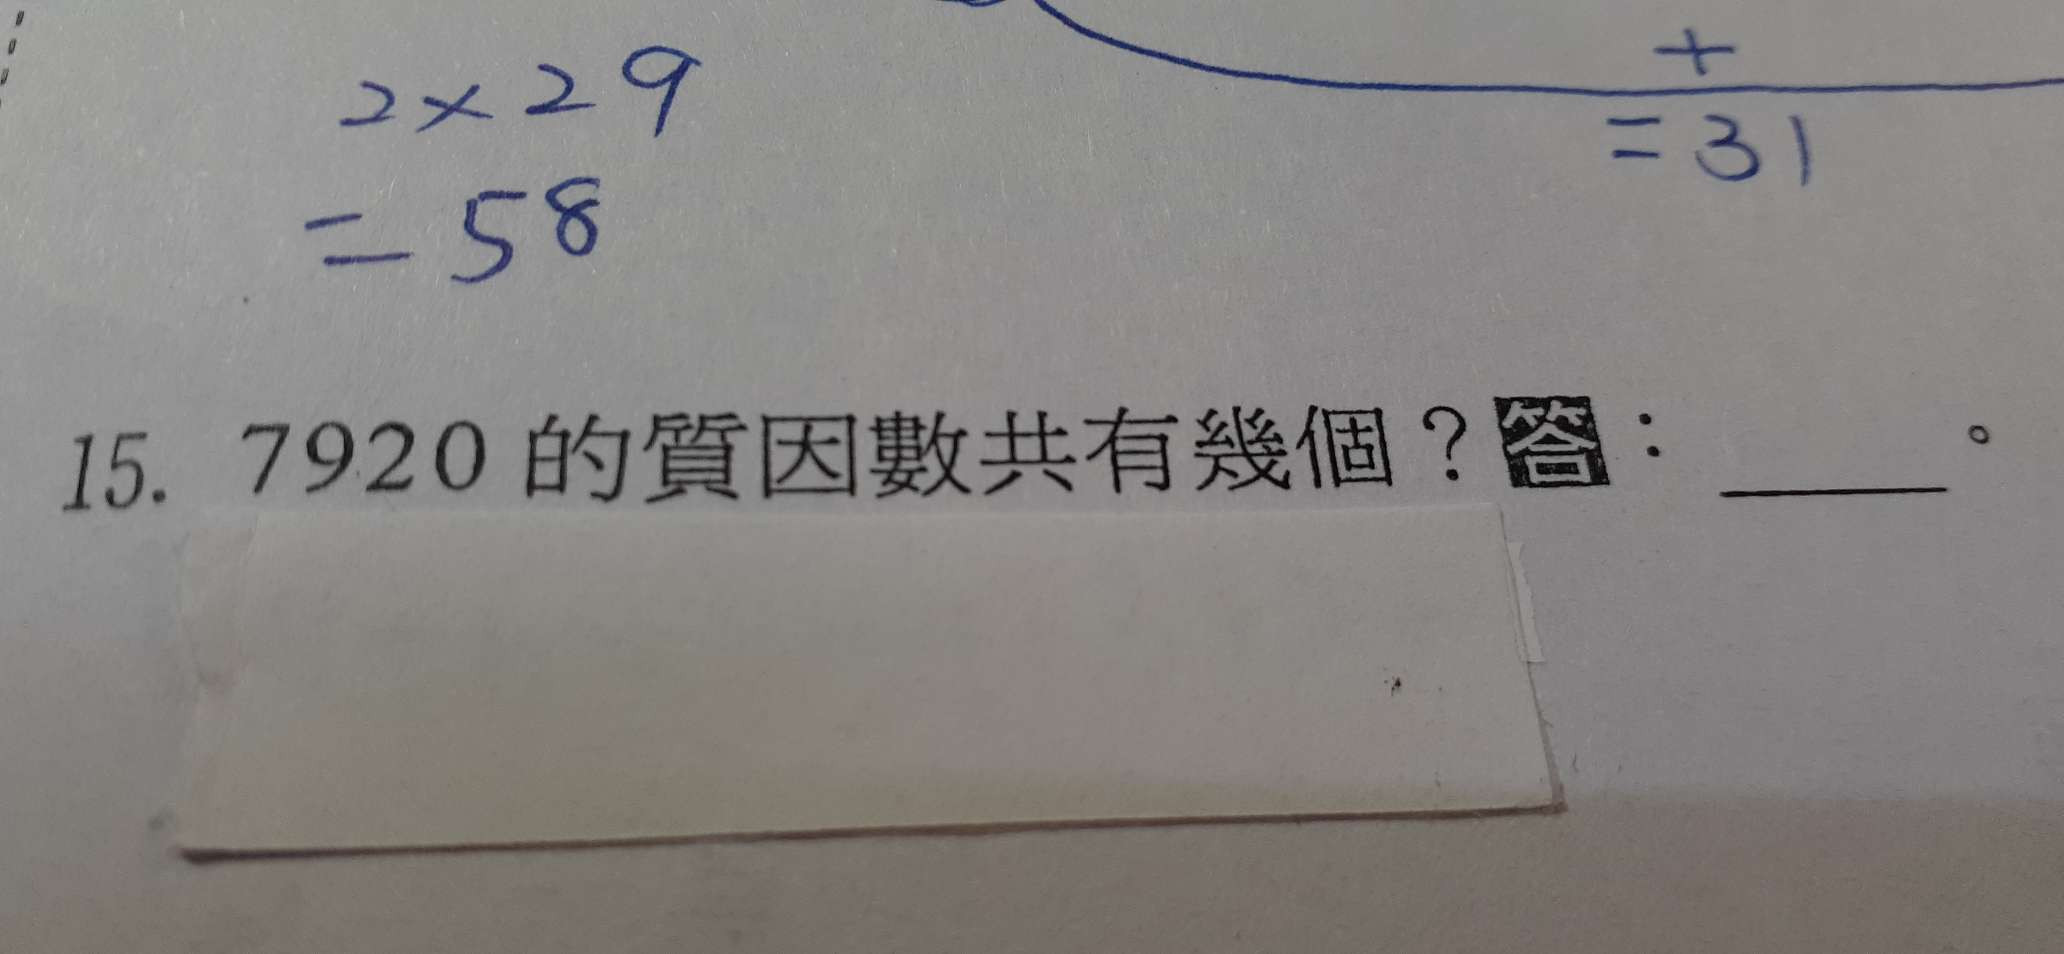 2×29
=58
+
=31
15. 7920 的質因數共有幾個？答：____。